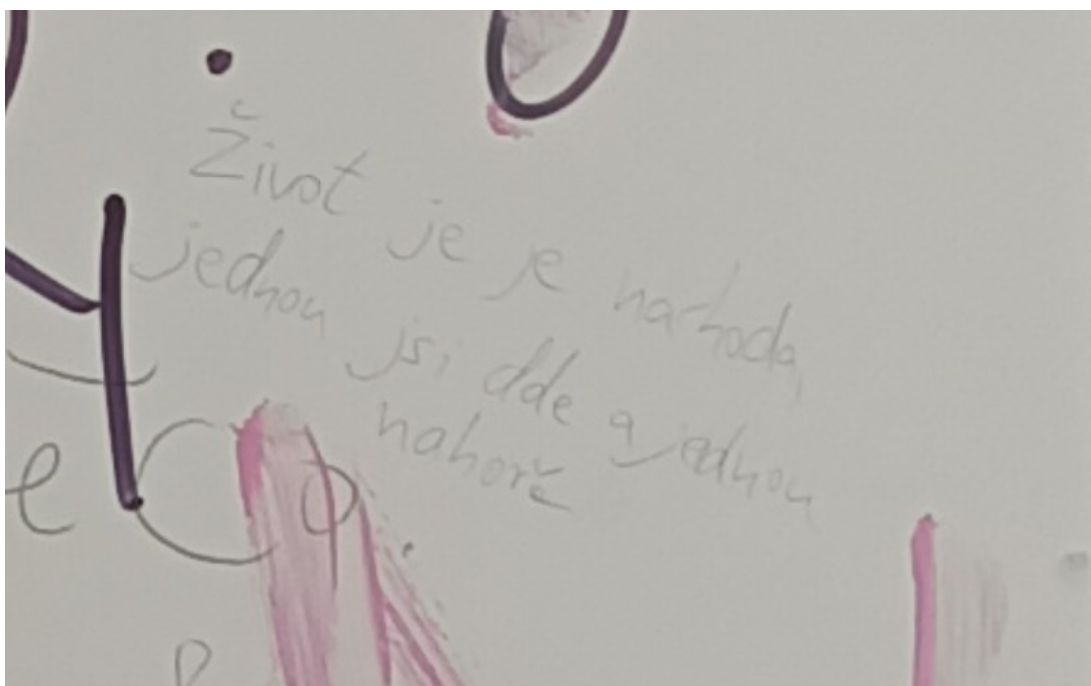 Život je je narhoda,
jednou jsi dde a jednou
nahoře
e Co.